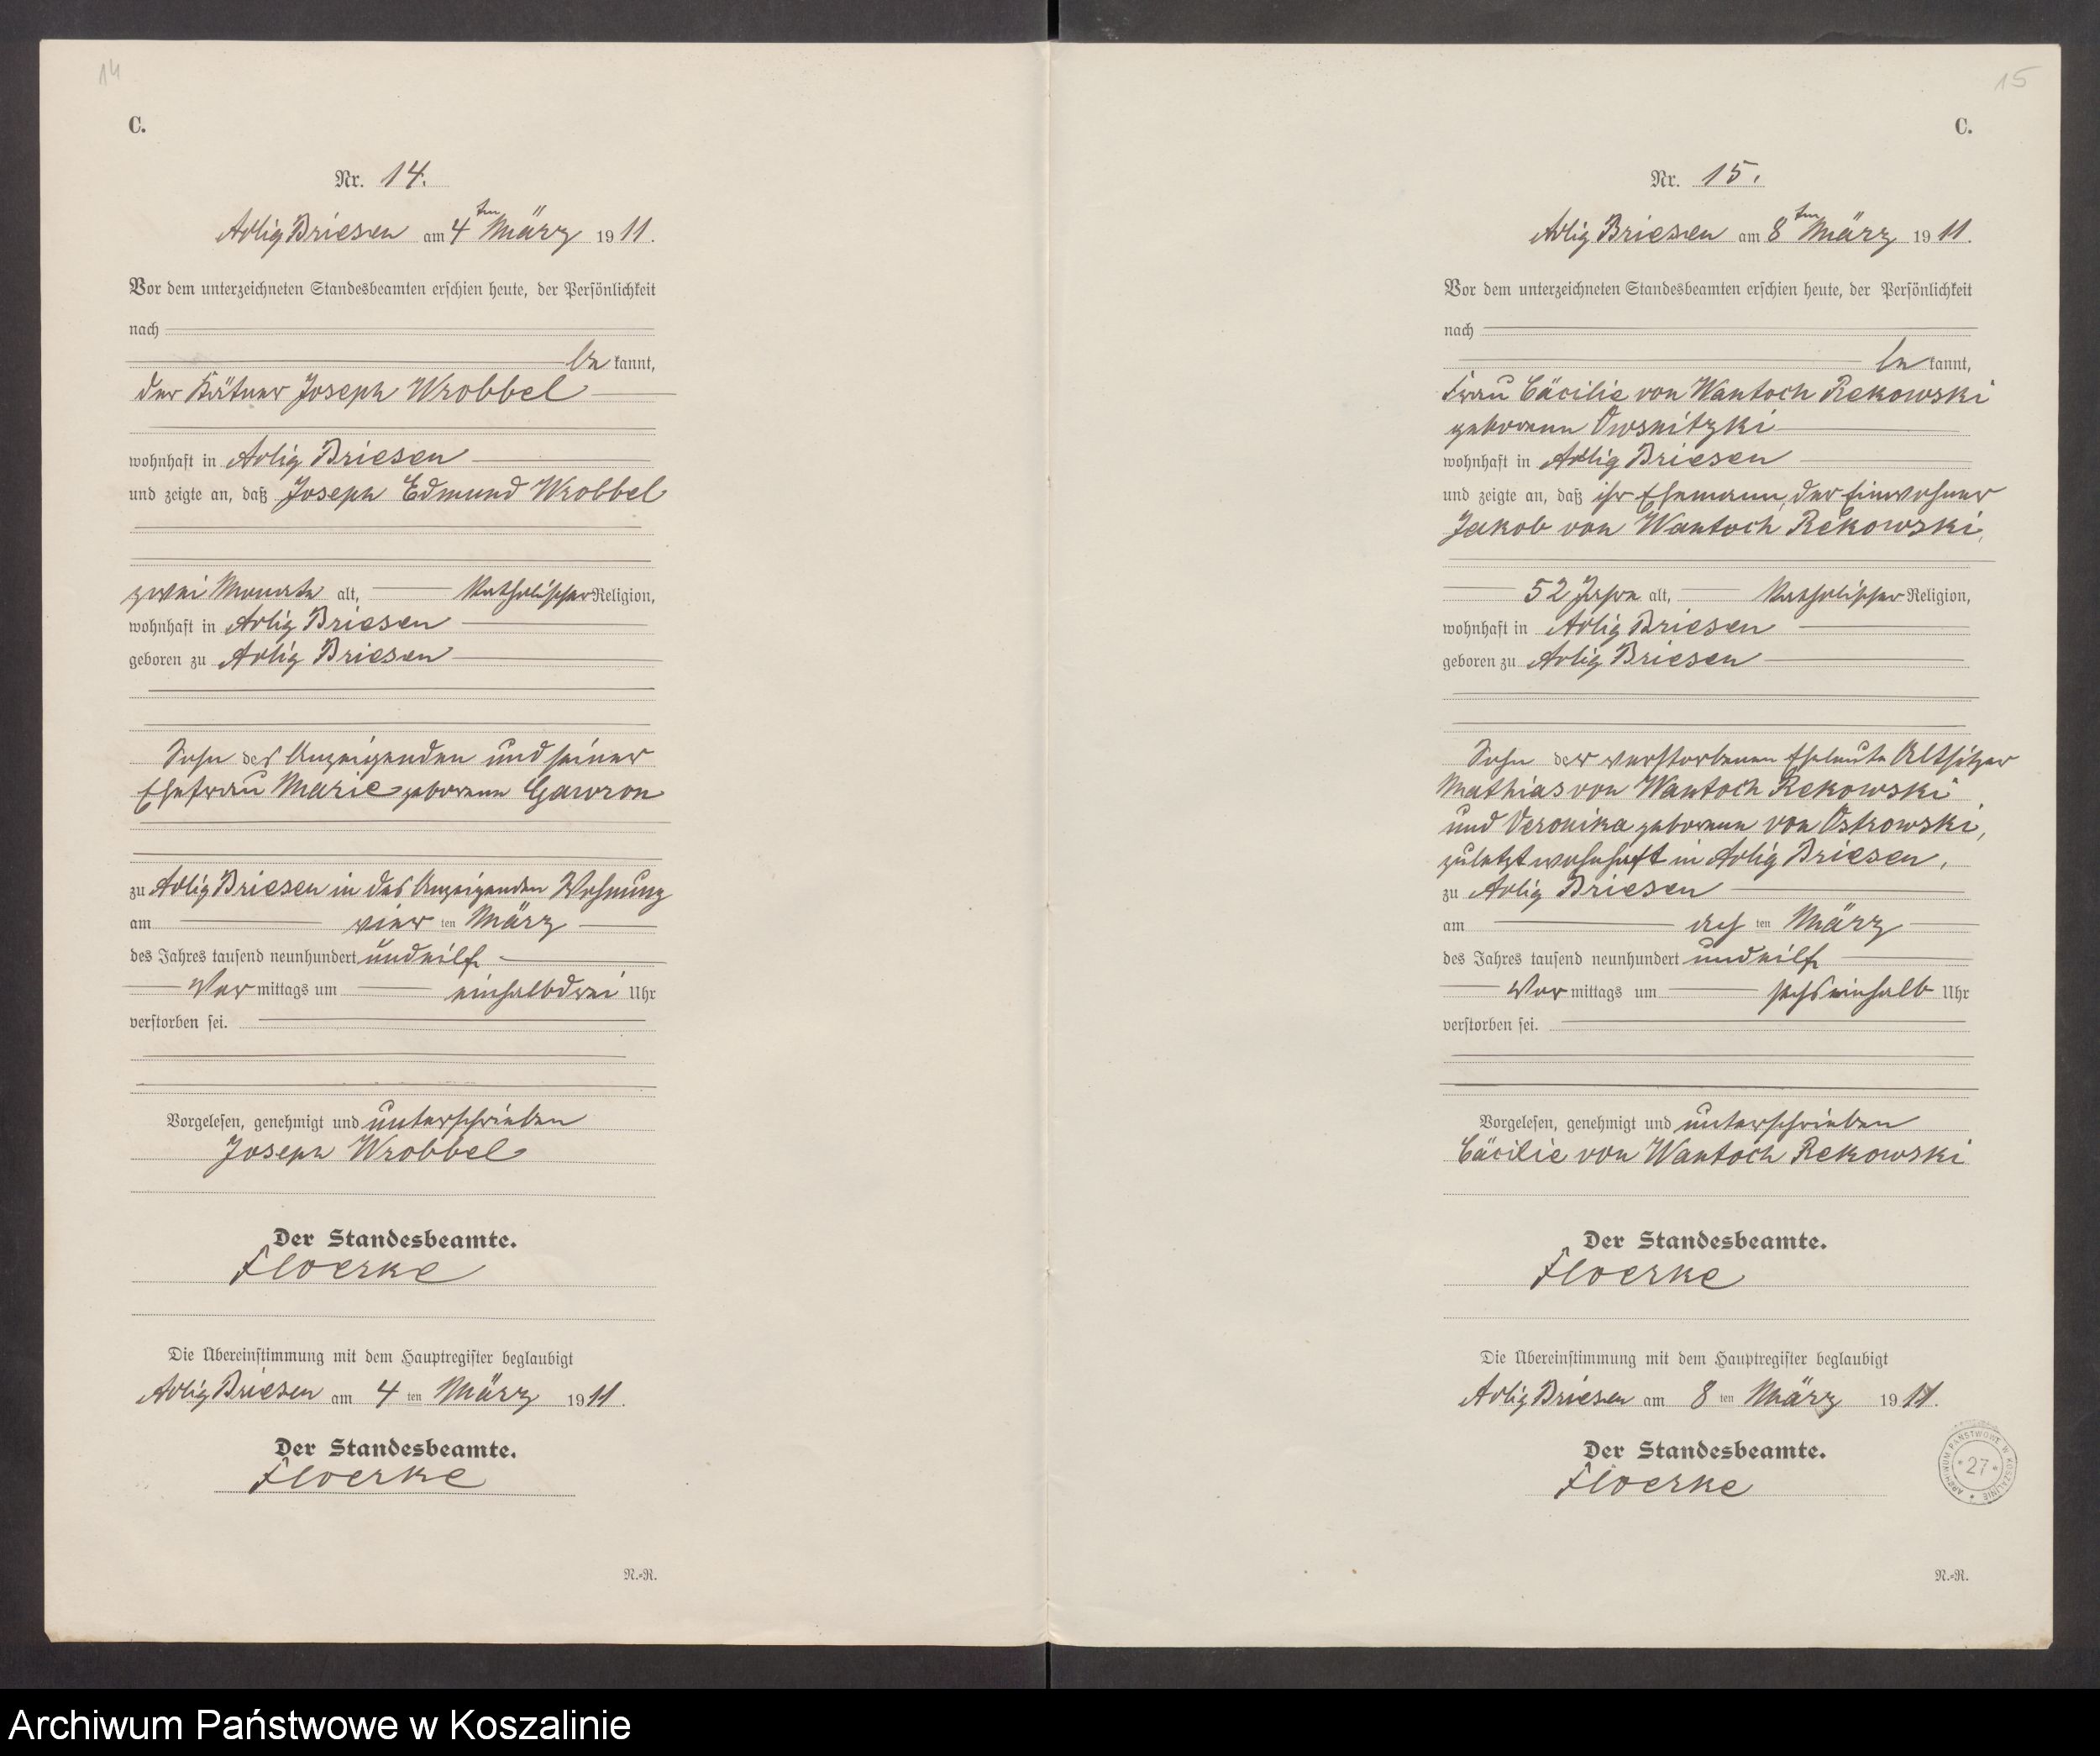 14
C.
Nr. 14.
Adlig Briesen am 4ten März 1911.
Vor dem unterzeichneten Standesbeamten erschien heute, der Persönlichkeit
nach
bekannt,
der Kätner Joseph Wrobbel
wohnhaft in Adlig Briesen
und zeigte an, daß Joseph Edmund Wrobbel
zwei Monate alt, katholischer Religion,
wohnhaft in Adlig Briesen
geboren zu Adlig Briesen
Sohn des Anzeigenden und seiner
Ehefrau Marie geborenen Gawron
zu Adlig Briesen in des Anzeigenden Wohnung
am vierten März
des Jahres tausend neunhundert und eilf
Vormittags um einhalbdrei Uhr
verstorben sei.
Vorgelesen, genehmigt und unterschrieben
Joseph Wrobbel
Der Standesbeamte.
Floerke
Die Übereinstimmung mit dem Hauptregister beglaubigt
Adlig Briesen am 4ten März 1911.
Der Standesbeamte.
Floerke
N.=R.
15
C.
Nr. 15.
Adlig Briesen am 8ten März 1911.
Vor dem unterzeichneten Standesbeamten erschien heute, der Persönlichkeit
nach
bekannt,
Frau Cäcilie von Wantoch Rekowski
geborenen Owsnitzki
wohnhaft in Adlig Briesen
und zeigte an, daß ihr Ehemann, der Einwohner
Jakob von Wantoch Rekowski,
52 Jahre alt, katholischer Religion,
wohnhaft in Adlig Briesen
geboren zu Adlig Briesen
Sohn der verstorbenen Eheleute Altsitzer
Mathias von Wantoch Rekowski
und Veronika geborenen von Ostrowski,
zuletzt wohnhaft in Adlig Briesen,
zu Adlig Briesen
am achten März
des Jahres tausend neunhundert und eilf
Vormittags um sechseinhalb Uhr
verstorben sei.
Vorgelesen, genehmigt und unterschrieben
Cäcilie von Wantoch Rekowski
Der Standesbeamte.
Floerke
Die Übereinstimmung mit dem Hauptregister beglaubigt
Adlig Briesen am 8ten März 1911.
Der Standesbeamte.
Floerke
ARCHIWUM PAŃSTWOWE W KOSZALINIE
* 27 *
N.=R.
Archiwum Państwowe w Koszalinie